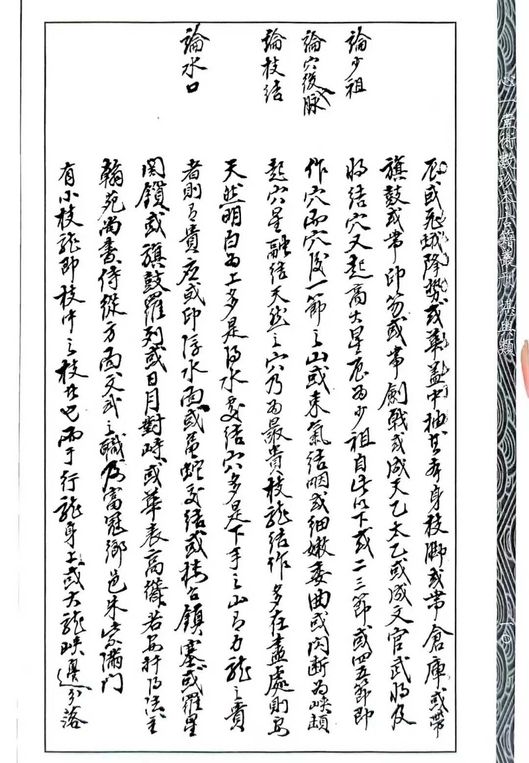 心一堂術數珍本古籍叢刊 堪輿類
論少祖
論穴後脉
論枝結
論水口
辰或飛蛾降勢或華蓋中抽其本身枝脚或帶倉庫或帶
旗鼓或帶印笏或帶劍戟或成天乙太乙或成文官武將及
將結穴又起高大星辰為少祖自此以下或二三節或四五節即
作穴而穴後一節之山或束氣結咽或細嫩委曲或闪断為峡頓
起穴星融結天然之穴乃為最貴枝龍結作多在盡處則
天然明白為上多是得水處結穴多是下手之山有力龍之貴
者則有貴應或印浮水面或龜蛇交結或樓台鎮塞或羅星
関鎖或旗鼓羅列或日月對峙或華表高 若安扦得法主
翰苑尚書侍從方面文武之職及富冠鄉邑朱 滿門
有小枝龍即枝中之枝 也 于行龍身上或大龍峡邊分落